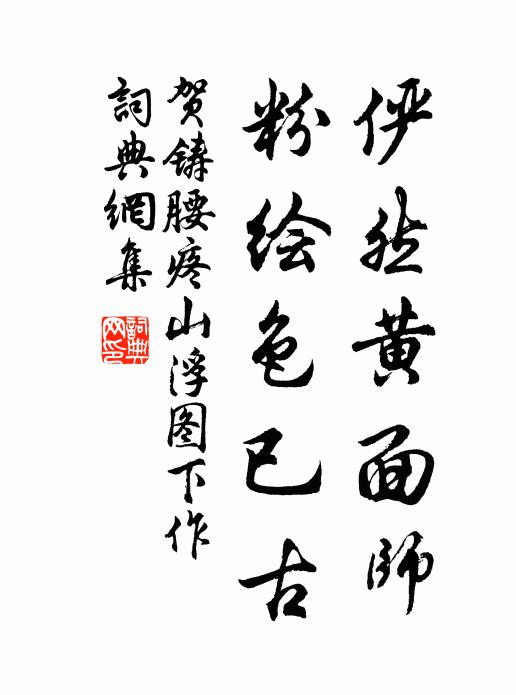 俨然黄面师
粉绘色已古
贺铸腰疼山浮图下作
詞典網集
詞典网印